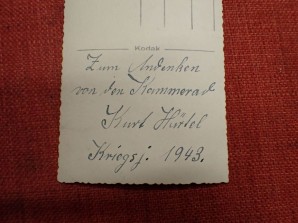 Kodak
Zum Andenken
von den Kammerad
Kurt Härtel
Kriegsj. 1943.